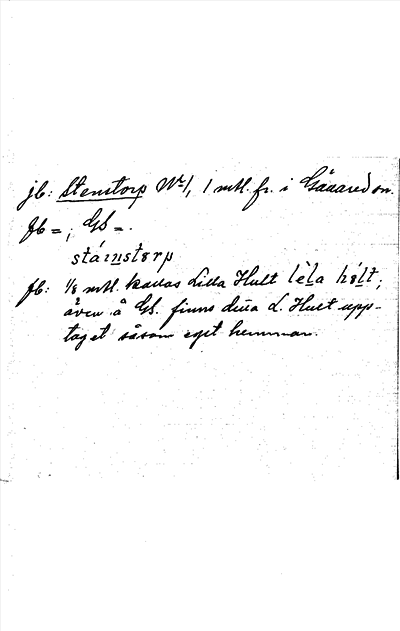 jb: Stenstorp Nr 1, 1 mtl. fr. i Gåsared sn.
fb = ; GS =.
stáinstɵrp
fb: 1/8 mtl. kallas Lilla Hult lèla hɵ́lt;
även å GS. finns detta L. Hult upp-
taget såsom eget hemman.